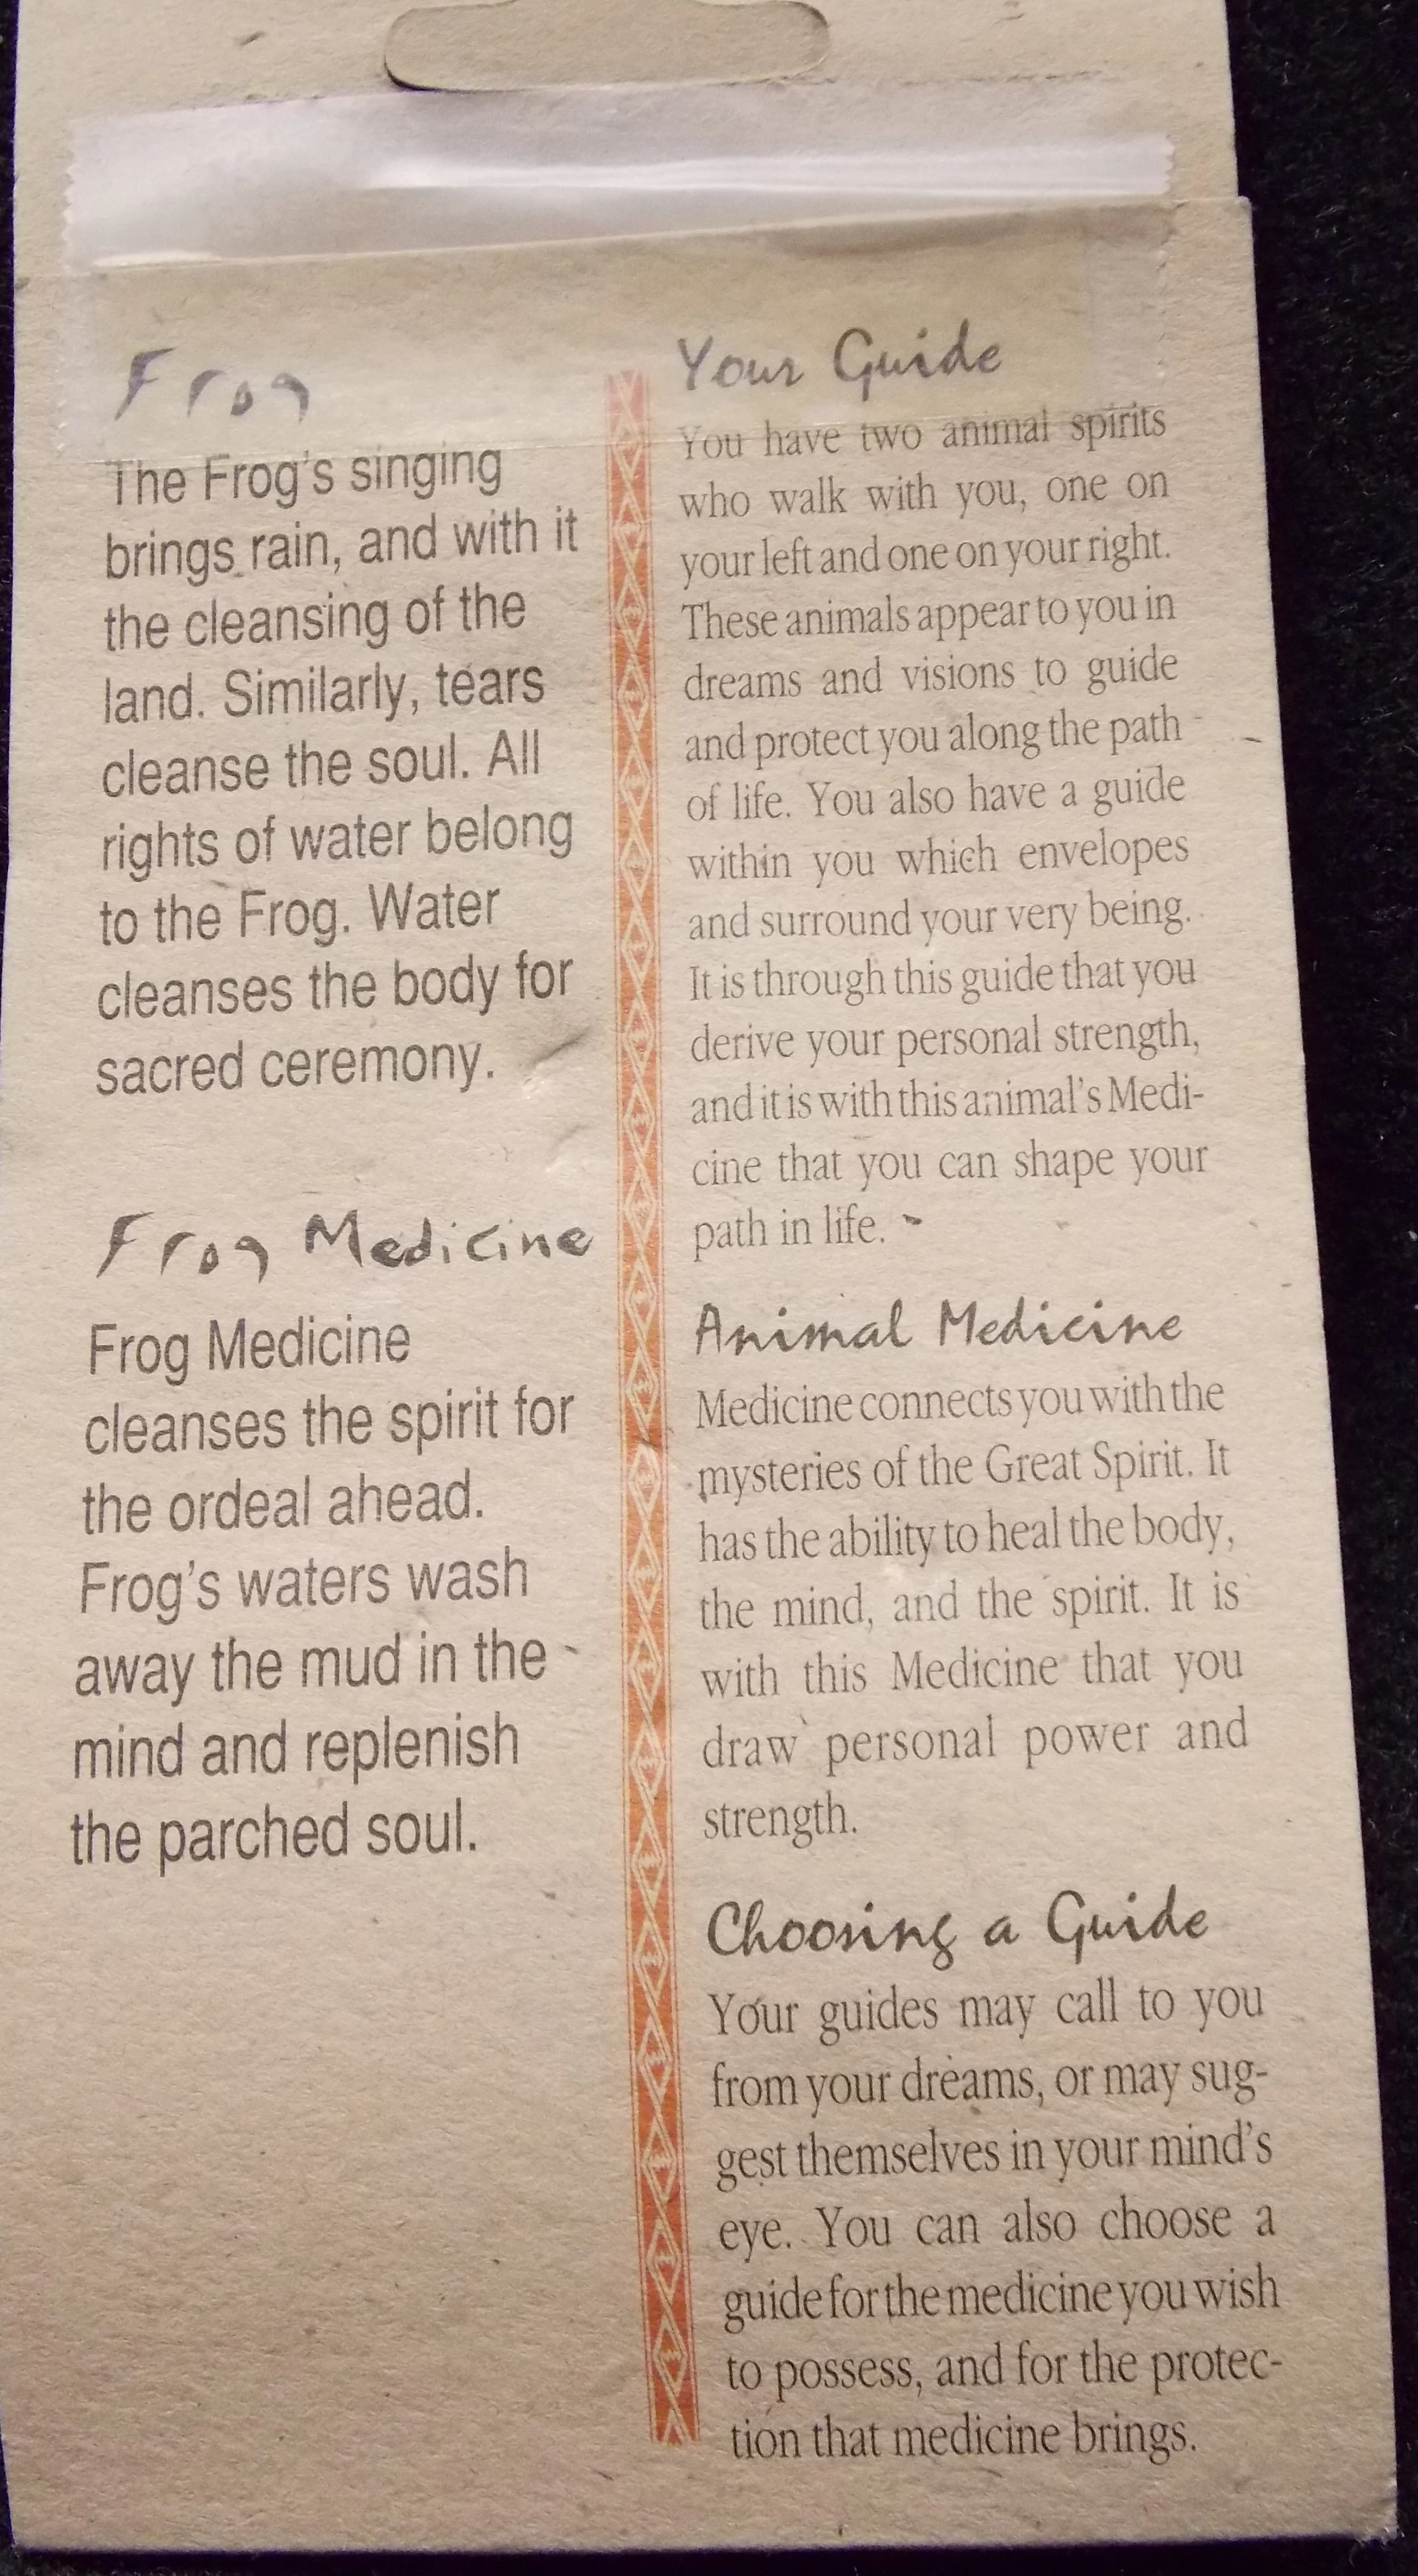 Frog
The Frog's singing
brings rain, and with it
the cleansing of the
land. Similarly, tears
cleanse the soul. All
rights of water belong
to the Frog. Water
cleanses the body for
sacred ceremony.
Frog Medicine
Frog Medicine
cleanses the spirit for
the ordeal ahead.
Frog's waters wash
away the mud in the
mind and replenish
the parched soul.
Your Guide
You have two animal spirits
who walk with you, one on
your left and one on your right.
These animals appear to you in
dreams and visions to guide
and protect you along the path
of life. You also have a guide
within you which envelopes
and surround your very being.
It is through this guide that you
derive your personal strength,
and it is with this animal's Medi-
cine that you can shape your
path in life.
Animal Medicine
Medicine connects you with the
mysteries of the Great Spirit. It
has the ability to heal the body,
the mind, and the spirit. It is
with this Medicine that you
draw personal power and
strength.
Choosing a Guide
Your guides may call to you
from your dreams, or may sug-
gest themselves in your mind's
eye. You can also choose a
guide for the medicine you wish
to possess, and for the protec-
tion that medicine brings.